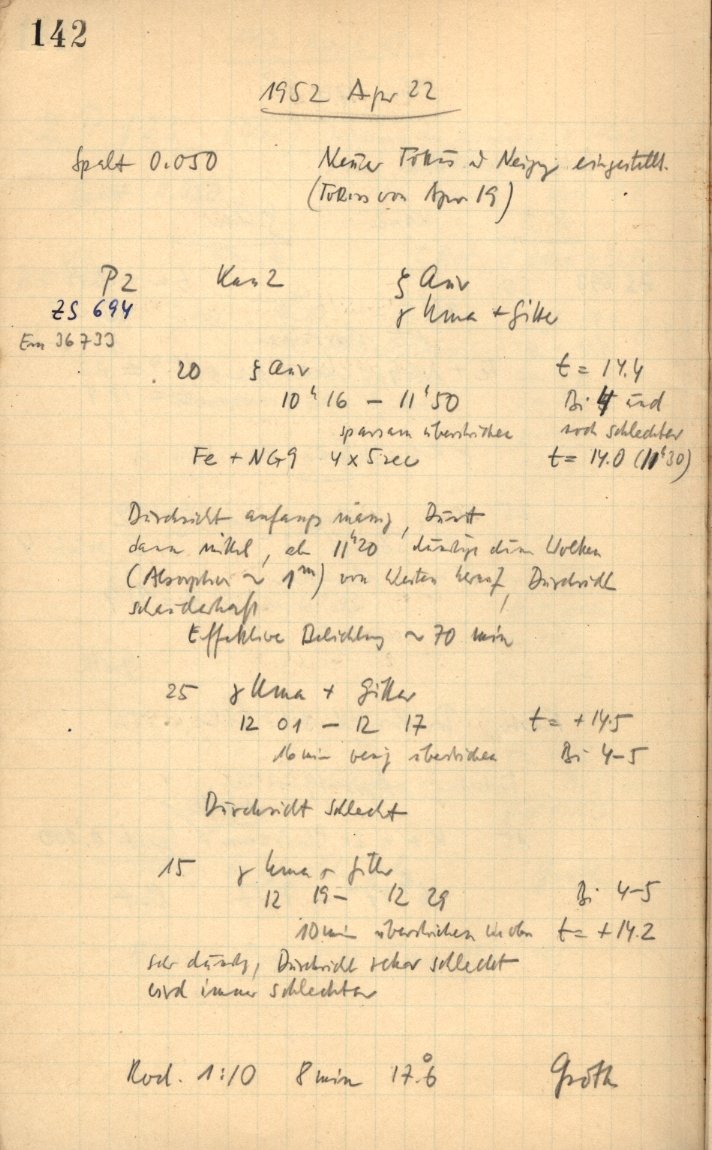 142
1952 Apr 22
Spalt 0.050 Neuer Fokus u Neigg eingestellt.
(Fokus von Apr 19)
P2 Kam 2 ξ Aur
ZS 694 γ Uma + Gitter
Em 36733
20 ξ Aur t = 14.4
10ʰ16 – 11ʰ50 Bi 4 und
sparsam überstrichen noch schlechter
Fe + NG9 4 x 5 sec t = 14.0 (11ʰ30)
Durchsicht anfangs mässig, Dunst
dann mittel, ab 11ʰ20 dunstige dünne Wolken
(Absorption ~ 1ᵐ) von Westen herauf, Durchsicht
schauderhaft
Effektive Belichtung ~ 70 min
25 γ Uma + Gitter
12 01 – 12 17 t = +14.5
16 min wenig überstrichen Bi 4–5
Durchsicht schlecht
15 γ Uma + Gitter
12 19 – 12 29 Bi 4–5
10 min überstrichen t = +14.2
sehr dunstig, Durchsicht sehr schlecht
wird immer schlechter
Rod. 1:10 8 min 17.°6 Groth